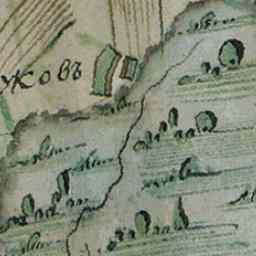 жовъ